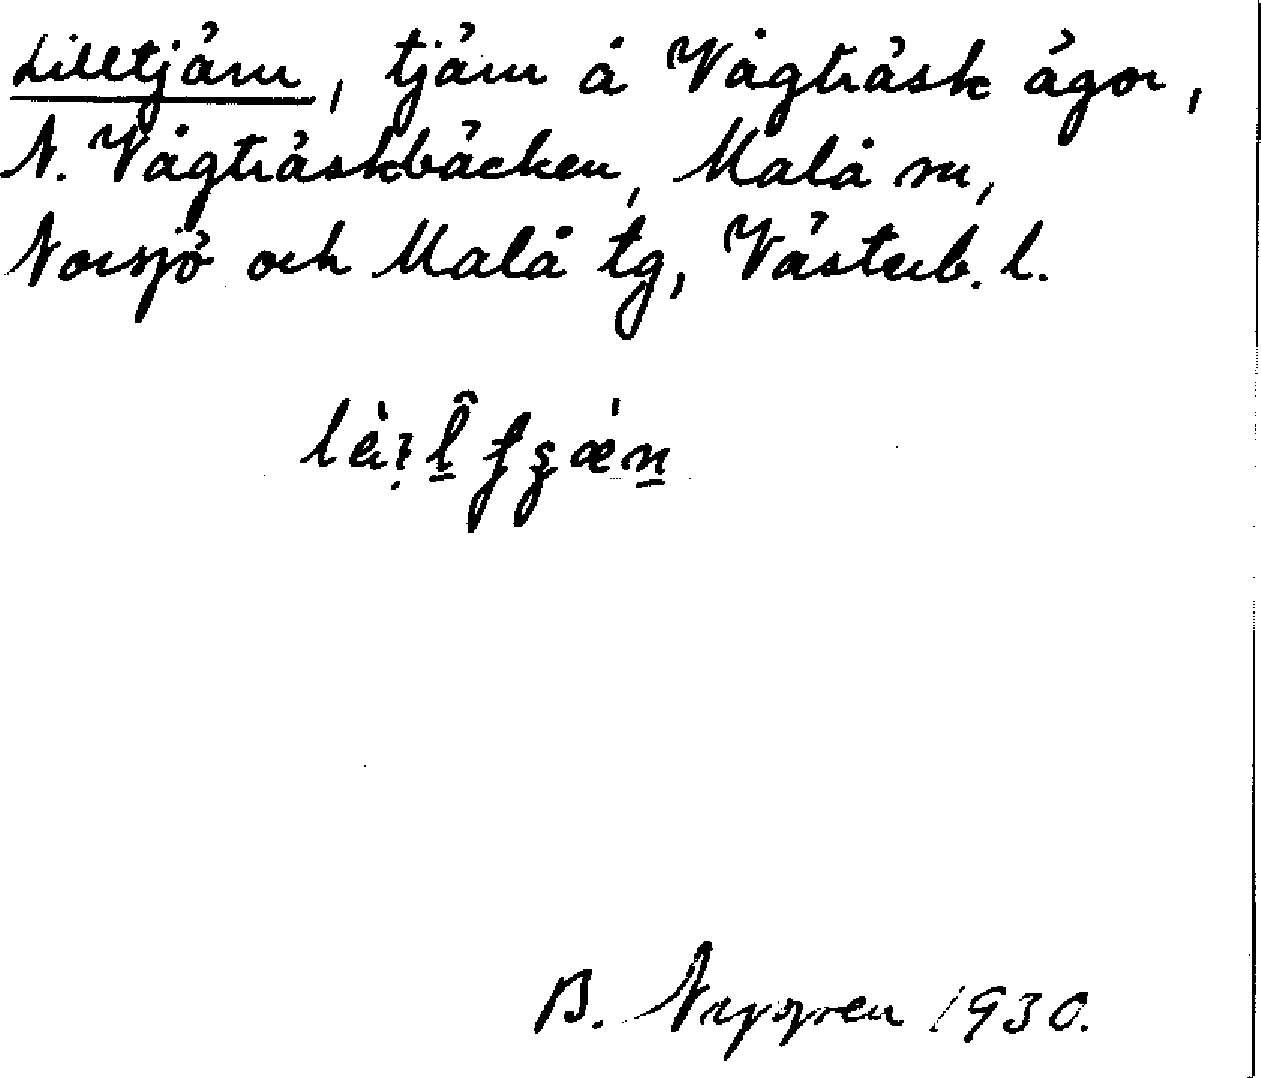 Lilltjärn, tjärn å Vågträsk ägor,
N. Vågträskbäcken, Malå sn,
Norsjö och Malå tg, Västerb. l.
B. Nygren 1930.